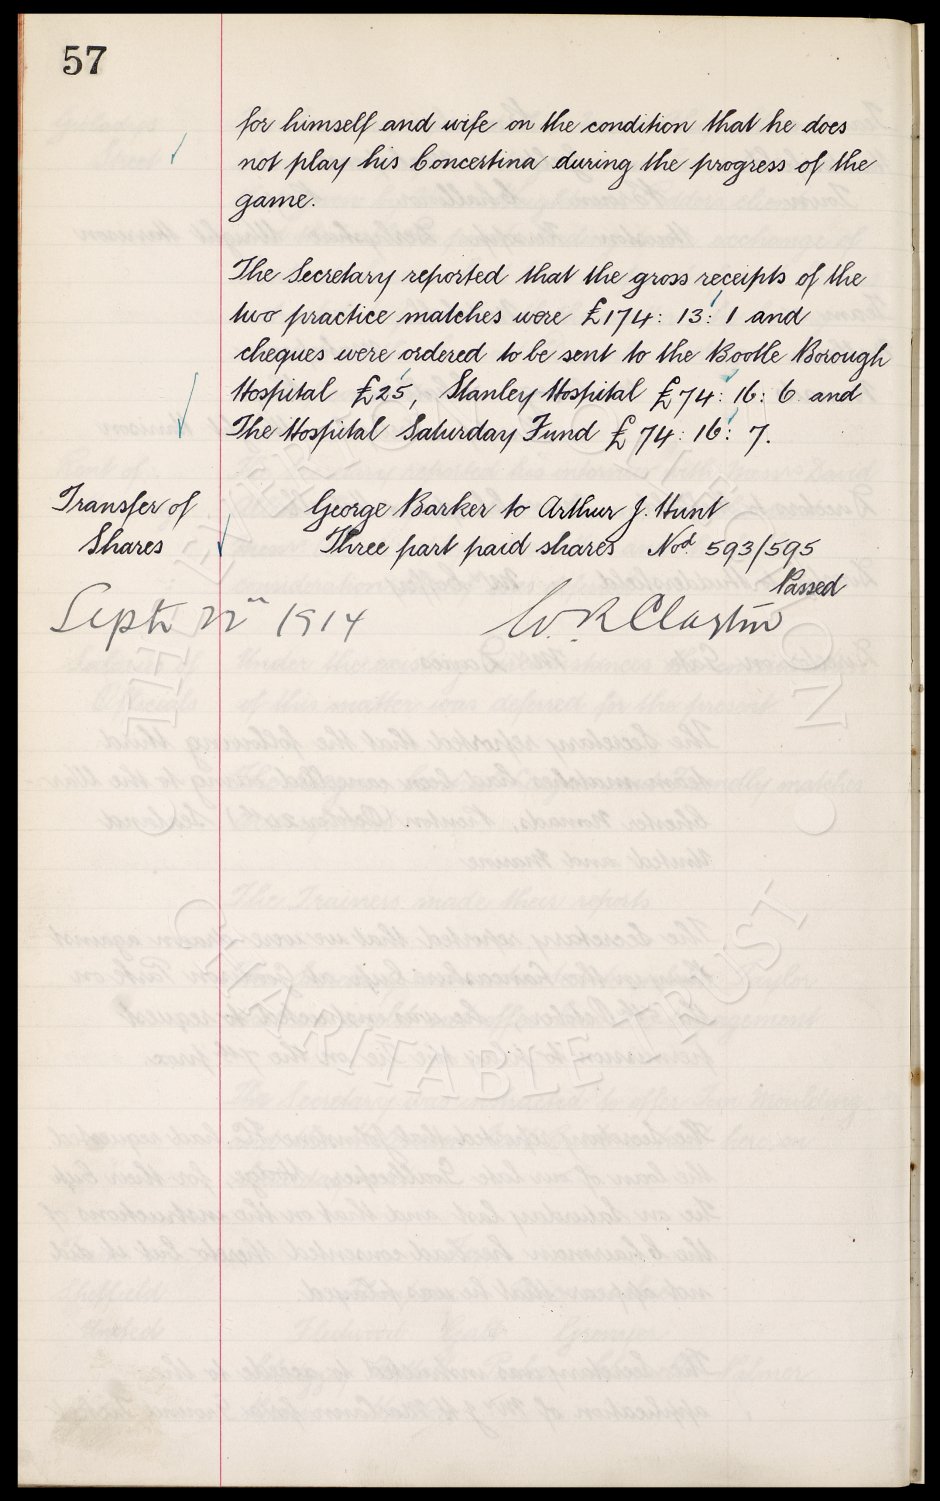 57
for himself and wife on the condition that he does
not play his Concertina during the progress of the
game.
The Secretary reported that the gross receipts of the
two practice matches were £174: 13: 1 and
cheques were ordered to be sent to the Bootle Borough
Hospital £25, Stanley Hospital £74: 16: 6 and
The Hospital Saturday Fund £74: 16: 7.
Transfer of George Barker to Arthur J. Hunt
Shares Three part paid shares Nos. 593/595
Passed
Sept 1914 W. R Clayton
THE EVERTON COLLECTION
CHARITABLE TRUST